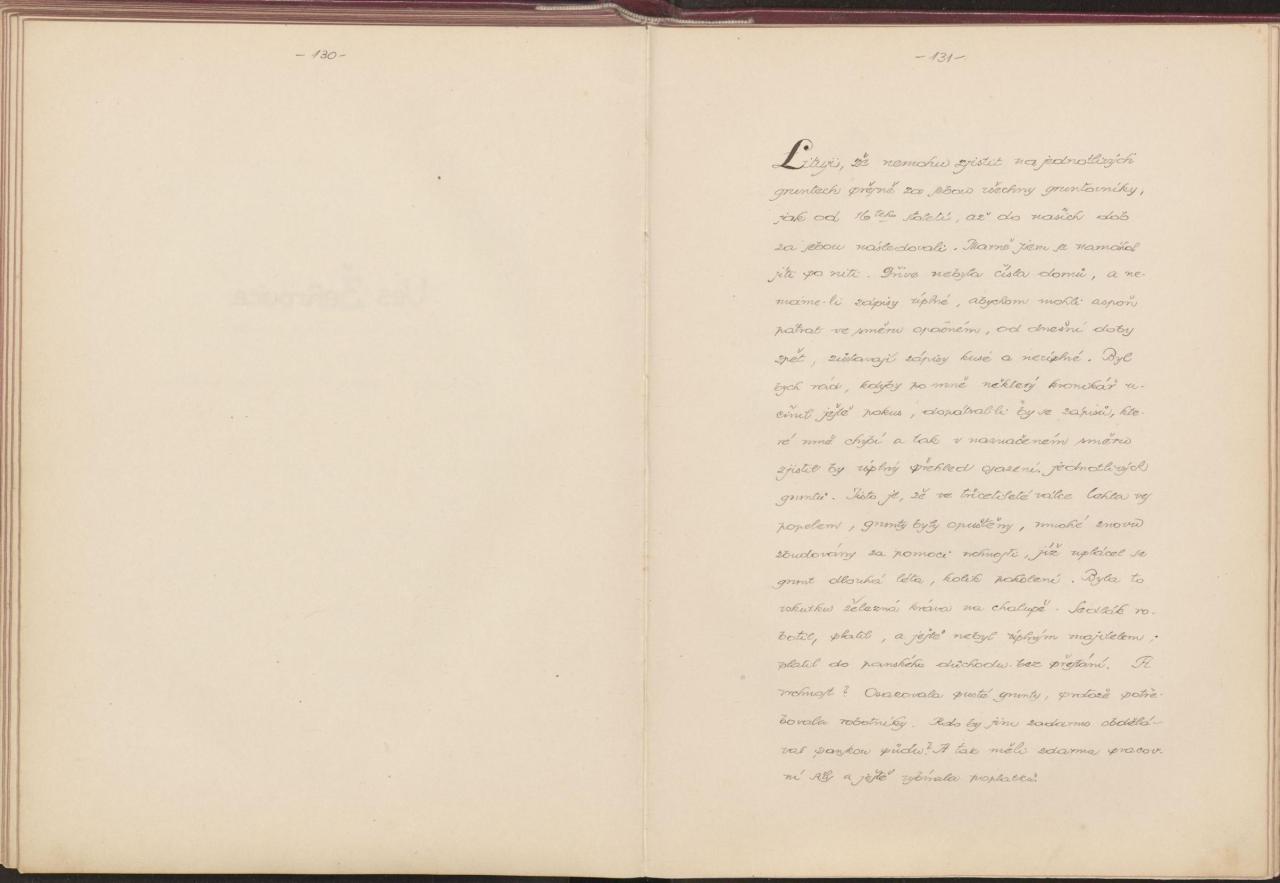 - 130 -
- 131 -
Lituji, že nemohu zjistit na jednotlivých
gruntech přesně za sebou všechny gruntovníky,
jak od 16tého století, až do našich dob
za sebou následovali. Marně jsem se namáhal
jíti po niti. Dříve nebyla čísla domů, a ne-
máme-li zápisy úplné, abychom mohli aspoň
pátrat ve směru opačném, od dnešní doby
zpět, zůstavají zápisy kusé a neúplné. Byl
bych rád, kdyby po mně některý kronikář u-
činil ještě pokus, dopátral-li by se zápisů, kte-
ré mně chybí a tak v naznačeném směru
zjistil by úplný přehled osazení jednotlivých
gruntů. Jisto je, že ve třicetileté válce lehla ves
popelem, grunty byly opuštěny, mnohé znovu
zbudovány za pomoci vrchnosti, jíž uplácel se
grunt dlouhá léta, kolik pokolení. Byla to
vskutku železná kráva na chalupě. Sedlák ro-
botil, platil, a ještě nebyl úplným majitelem;
platil do panského důchodu bez přestání. A
vrchnost? Osazovala pusté grunty, protože potře-
bovala robotníky. Kdo by jim zadarmo obdělá-
val panskou půdu? A tak měli zdarma pracov-
ní síly a ještě vybírala poplatků.